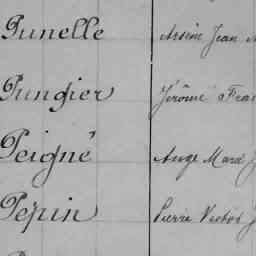 Punelle Arsène Jean
Pungier Jérôme Fran
Peigné Ange Marie J
Pépin Pierre Victor J